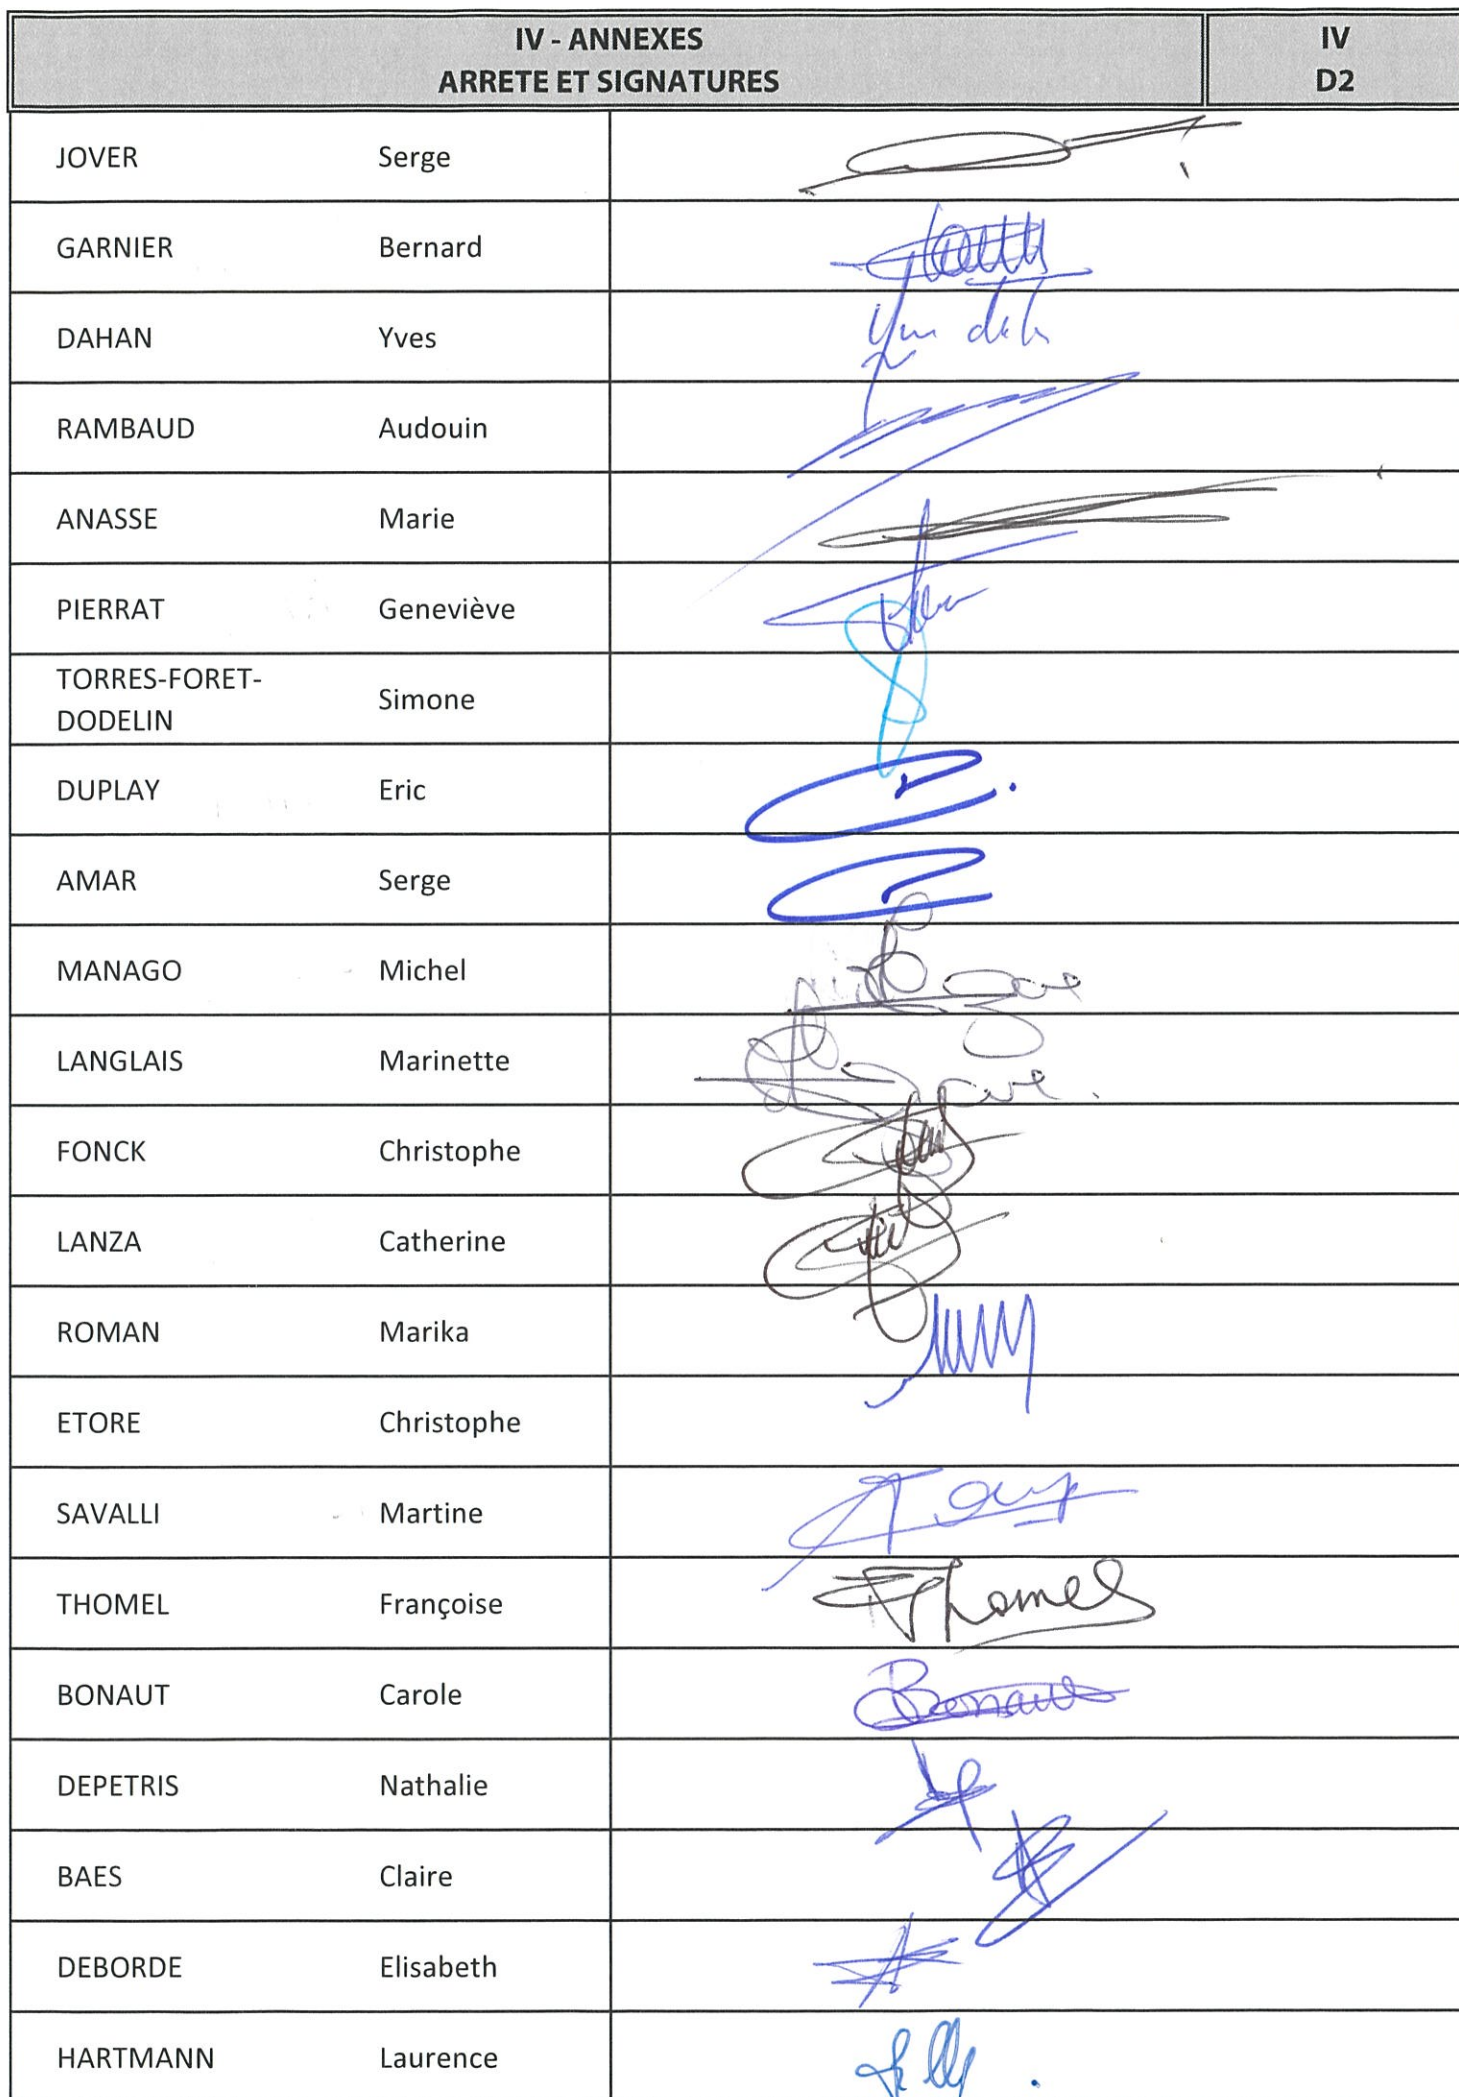 IV - ANNEXES
ARRETE ET SIGNATURES
IV
D2
JOVER Serge
GARNIER Bernard
DAHAN Yves
RAMBAUD Audouin
ANASSE Marie
PIERRAT Geneviève
TORRES-FORET-
DODELIN Simone
DUPLAY Eric
AMAR Serge
MANAGO Michel
LANGLAIS Marinette
FONCK Christophe
LANZA Catherine
ROMAN Marika
ETORE Christophe
SAVALLI Martine
THOMEL Françoise Thomel
BONAUT Carole Bonaut
DEPETRIS Nathalie
BAES Claire
DEBORDE Elisabeth
HARTMANN Laurence